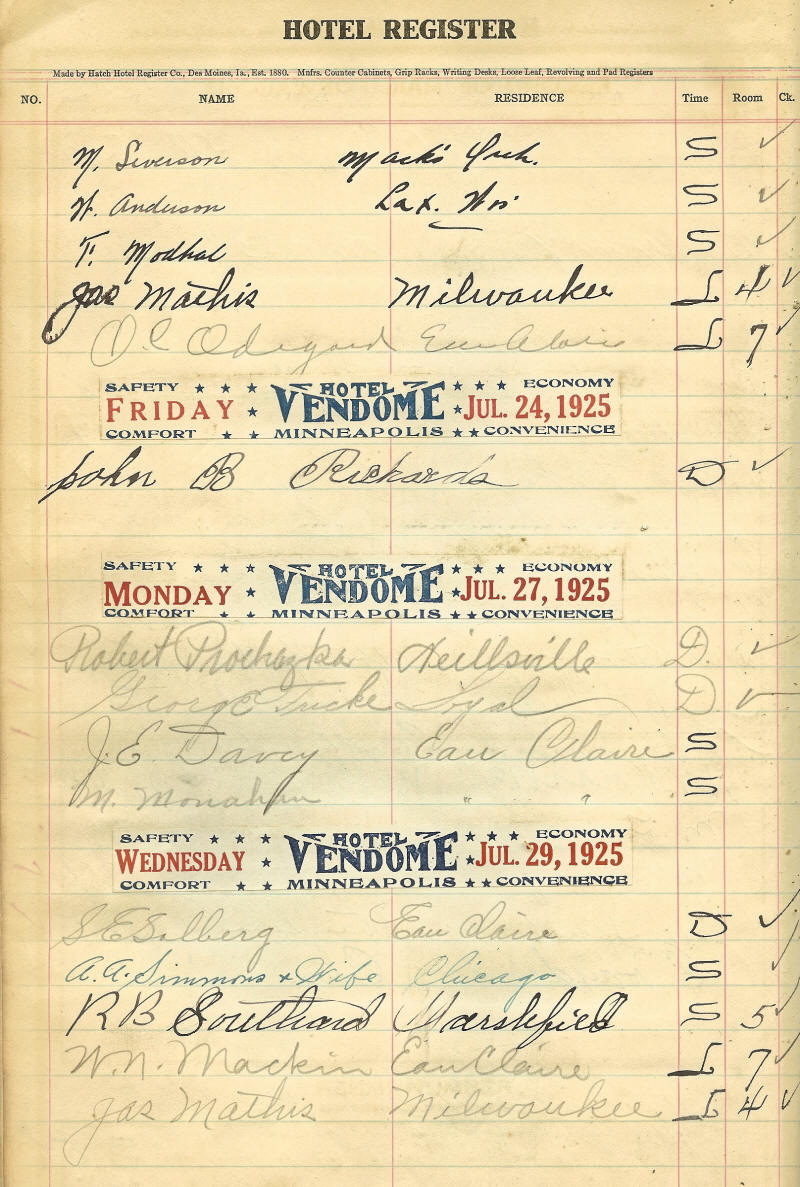 HOTEL REGISTER
Made by Hatch Hotel Register Co., Des Moines, Ia., Est. 1880. Mnfrs. Counter Cabinets, Grip Racks, Writing Desks, Loose Leaf, Revolving and Pad Registers
NO. NAME RESIDENCE Time Room Ck.
M. Siverson Mack's S ✓
W. Anderson Lax. Wis. S ✓
T. Modhal S ✓
Jas Mathis Milwaukee L 4 ✓
Odegard Eau Claire L 7 ✓
SAFETY ★ ★ ★ HOTEL ★ ★ ★ ECONOMY
FRIDAY ★ VENDOME ★ JUL. 24, 1925
COMFORT ★ ★ MINNEAPOLIS ★ ★ CONVENIENCE
John B Rickards D ✓
SAFETY ★ ★ ★ HOTEL ★ ★ ★ ECONOMY
MONDAY ★ VENDOME ★ JUL. 27, 1925
COMFORT ★ ★ MINNEAPOLIS ★ ★ CONVENIENCE
Robert Prochazka Neillsville D. ✓
George Fricke Loyal D ✓
J.E. Davey Eau Claire S
M. Monahan " " S
SAFETY ★ ★ ★ HOTEL ★ ★ ★ ECONOMY
WEDNESDAY ★ VENDOME ★ JUL. 29, 1925
COMFORT ★ ★ MINNEAPOLIS ★ ★ CONVENIENCE
S E Solberg Eau Claire D ✓
A. A. Simmons + Wife Chicago S
R B Southard Marshfield S 5 ✓
W. N. Mackin Eau Claire L 7 ✓
Jas Mathis Milwaukee L 4 ✓